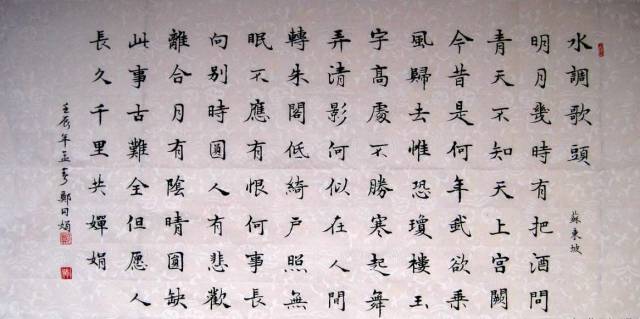 水調歌頭
蘇東坡
明月幾時有把酒問
青天不知天上宮闕
今昔是何年我欲乘
風歸去惟恐瓊樓玉
宇高處不勝寒起舞
弄清影何似在人間
轉朱閣低綺户照無
眠不應有恨何事長
向别時圓人有悲歡
離合月有陰晴圓缺
此事古難全但愿人
長久千里共嬋娟
壬辰年孟春鄭娟